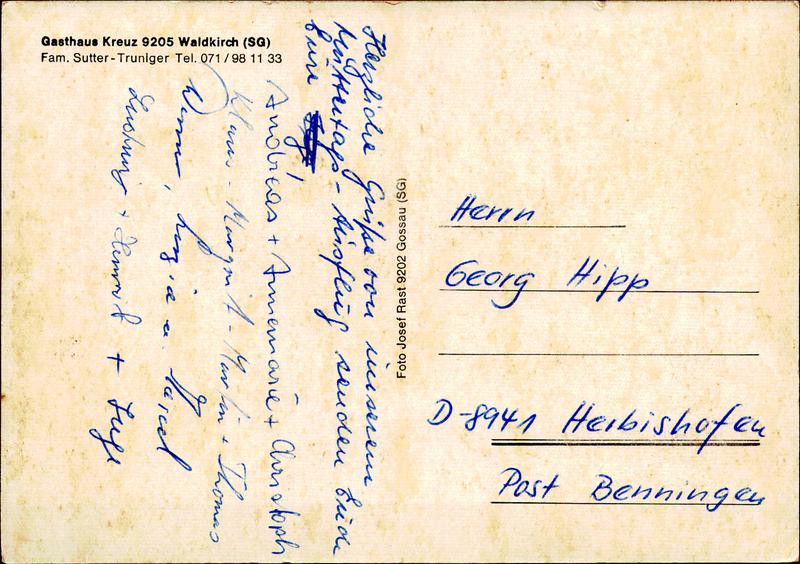 Gasthaus Kreuz 9205 Waldkirch (SG)
Fam. Sutter-Truniger Tel. 071/98 11 33
Herzliche Grüße von unserem
Muttertags-Ausflug senden Euch
Eure
Andreas + Annemarie + Christoph
Klaus - Margrit - Martin + Thomas
Werner, Luzia u. Marcel
Ludwig + +
Foto Josef Rast 9202 Gossau (SG)
Herrn
Georg Hipp
D-8941 Herbishofen
Post Benningen